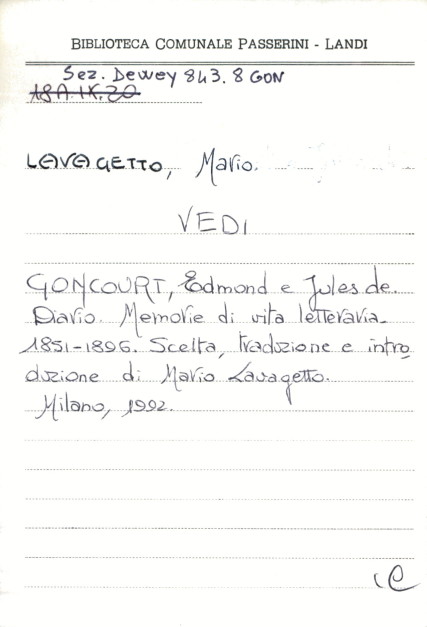 BIBLIOTECA COMUNALE PASSERINI - LANDI
Sez. Dewey 843.8 GON
18A.IX.20
LAVAGETTO, Mario.
VEDI
GONCOURT, Edmond e Jules de.
Diario. Memorie di vita letteraria.
1851-1896. Scelta, traduzione e intro
duzione di Mario Lavagetto.
Milano, 1992.